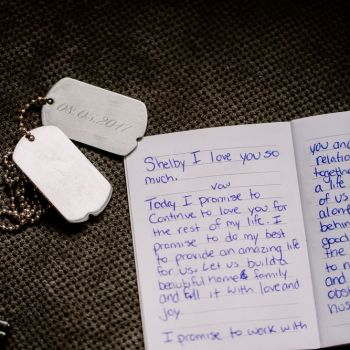 08.05.2017
Shelby I love you so
much.
vow
Today I promise to
continue to love you for
the rest of my life. I
promise to do my best
to provide an amazing life
for us. Let us build a
beautiful home & family
and fill it with love and
joy.
I promise to work with
you and
relation
together
a life
of us
along
behin
good
the
to n
and
obst
hus